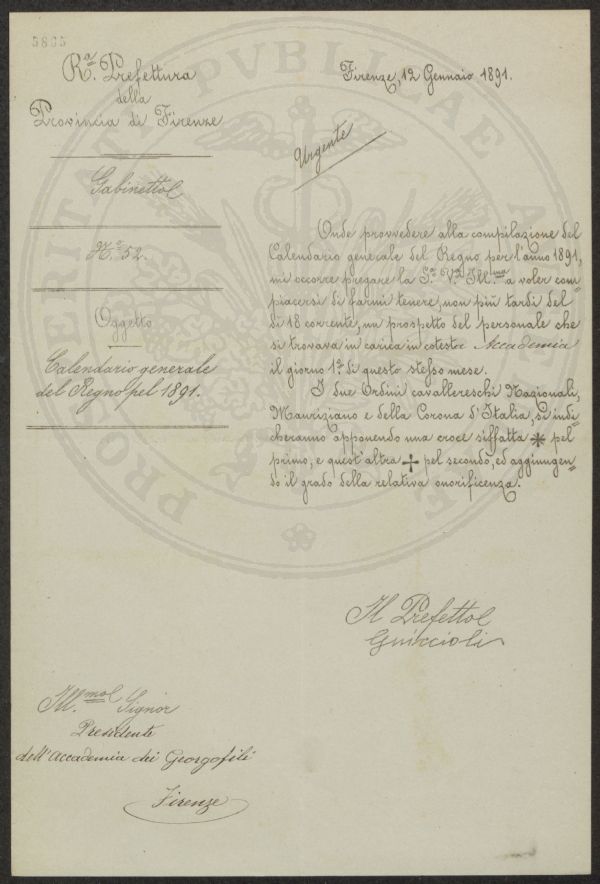 5865
R.ª Prefettura
della
Provincia di Firenze
Firenze, 12 Gennaio 1891.
Urgente
Gabinetto
N.º 52.
Oggetto
Calendario generale
del Regno pel 1891.
Onde provvedere alla compilazione del
Calendario generale del Regno per l'anno 1891,
mi occorre pregare la S.ª V.ª Ill.ma a voler com=
piacersi di farmi tenere, non più tardi del
dì 18 corrente, un prospetto del personale che
si trovava in carica in cotesta Accademia
il giorno 1º di questo stesso mese.
I due Ordini cavallereschi Nazionali,
Mauriziano e della Corona d'Italia, si indi=
cheranno apponendo una croce siffatta ✻ pel
primo, e quest'altra ✢ pel secondo, ed aggiungen=
do il grado della relativa onorificenza.
Il Prefetto
Guiccioli
Ill.mo Signor
Presidente
dell'Accademia dei Georgofili
Firenze
PROSPERITATI PVBLICAE A